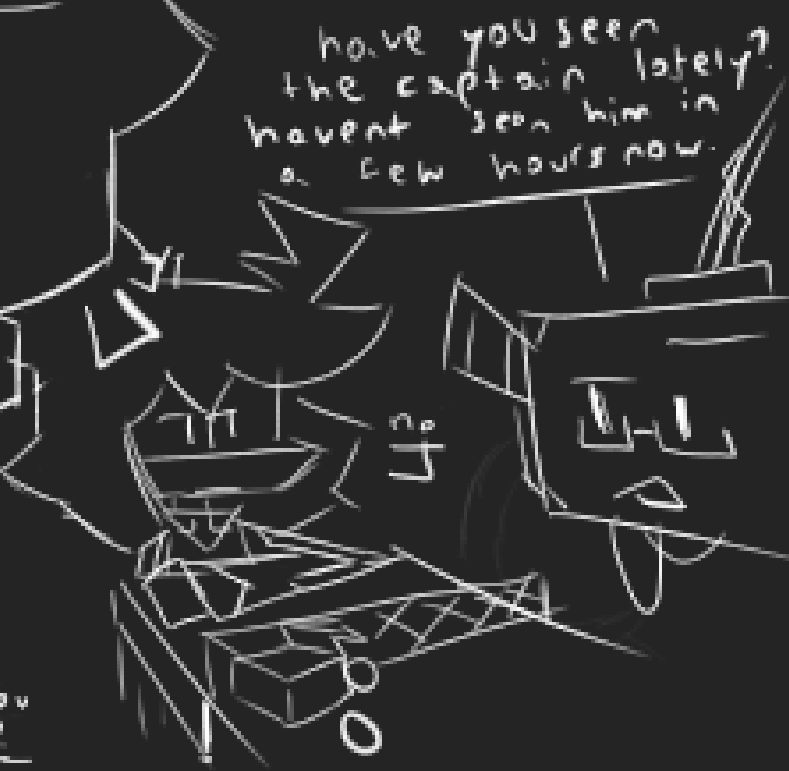 have you seen
the captain lately?
havent seen him in
a few hours now.
no
ou